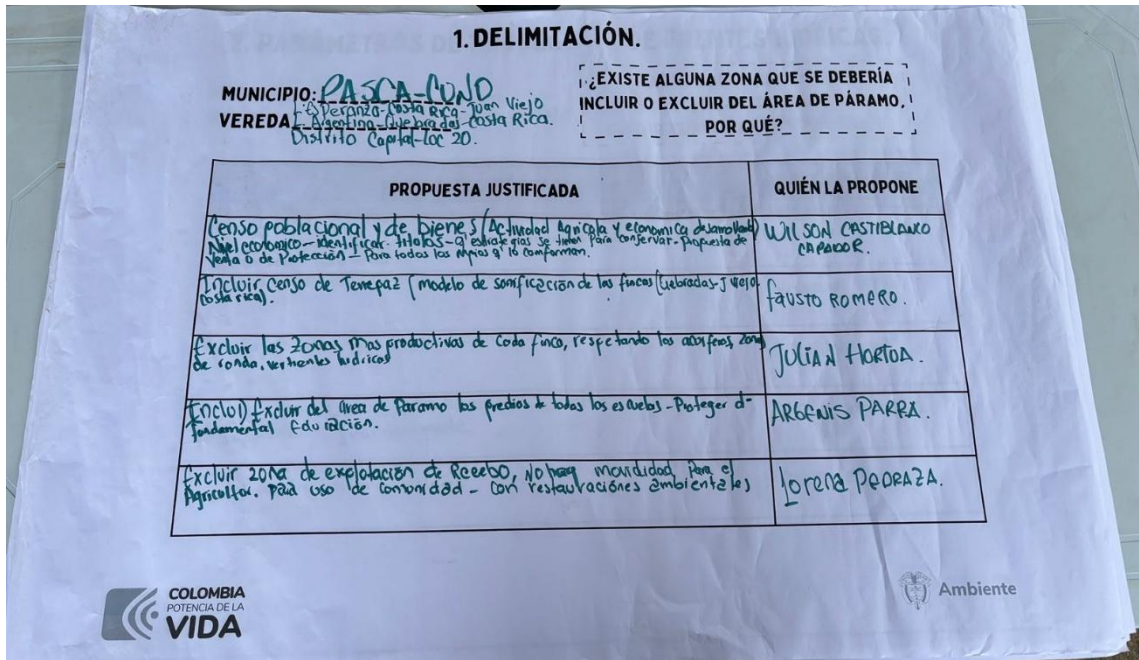 1. DELIMITACIÓN.
MUNICIPIO: PASCA-CUND
VEREDA: L. Esperanza-Costa Rica-Juan Viejo
L. Argentina-Quebradas-Costa Rica.
Distrito Capital-Loc 20.
¿EXISTE ALGUNA ZONA QUE SE DEBERÍA
INCLUIR O EXCLUIR DEL ÁREA DE PÁRAMO,
POR QUÉ?
PROPUESTA JUSTIFICADA
QUIÉN LA PROPONE
Censo poblacional y de bienes (Actividad Agricola y economica desarrollada)
Nivel ecologico-identificar titulos-q' estrategias se tienen para conservar-Propuesta de
Venta o de Protección - Para todos los mpios q' lo conforman.
WILSON CASTIBLANCO
CAPADOR.
Incluir, censo de Terrepaz (modelo de sonificación de las fincas (Quebradas-J Viejo
Costa rica).
FAUSTO ROMERO.
Excluir las zonas mas productivas de Cada finca, respetando los acuiferos, zona
de ronda, vertientes hidricas
JULIAN HORTUA.
Excluir del area de Paramo los predios de todas las escuelas-Proteger d-
fundamental Educación.
ARGENIS PARRA.
Excluir zona de explotación de Recebo, No hay movilidad, Para el
Agricultor. Para uso de comunidad - con restauraciones ambientales
Lorena PEDRAZA.
COLOMBIA
POTENCIA DE LA
VIDA
Ambiente